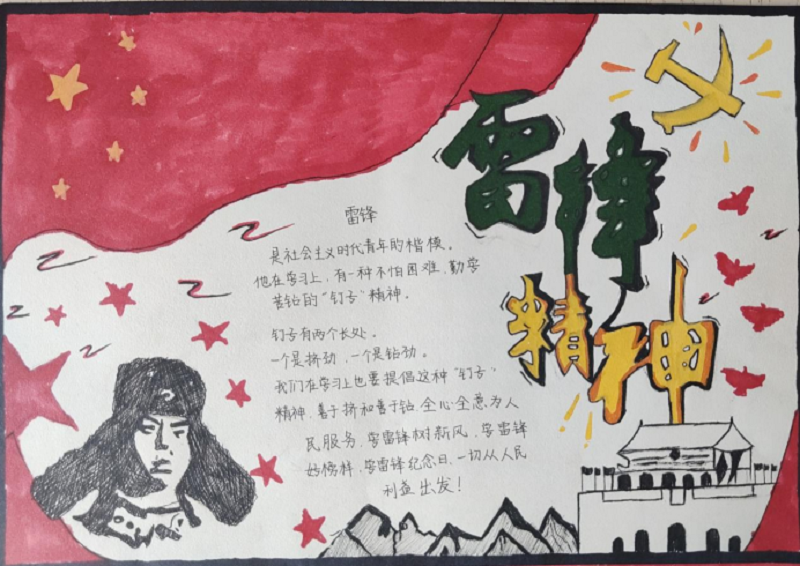 雷锋
精神
雷锋
是社会主义时代青年的楷模。
他在学习上，有一种不怕困难，勤学
苦钻的“钉子”精神。
钉子有两个长处。
一个是挤劲，一个是钻劲。
我们在学习上也要提倡这种“钉子”
精神，善于挤和善于钻，全心全意为人
民服务，学雷锋树新风，学雷锋
好榜样，学雷锋纪念日，一切从人民
利益出发！